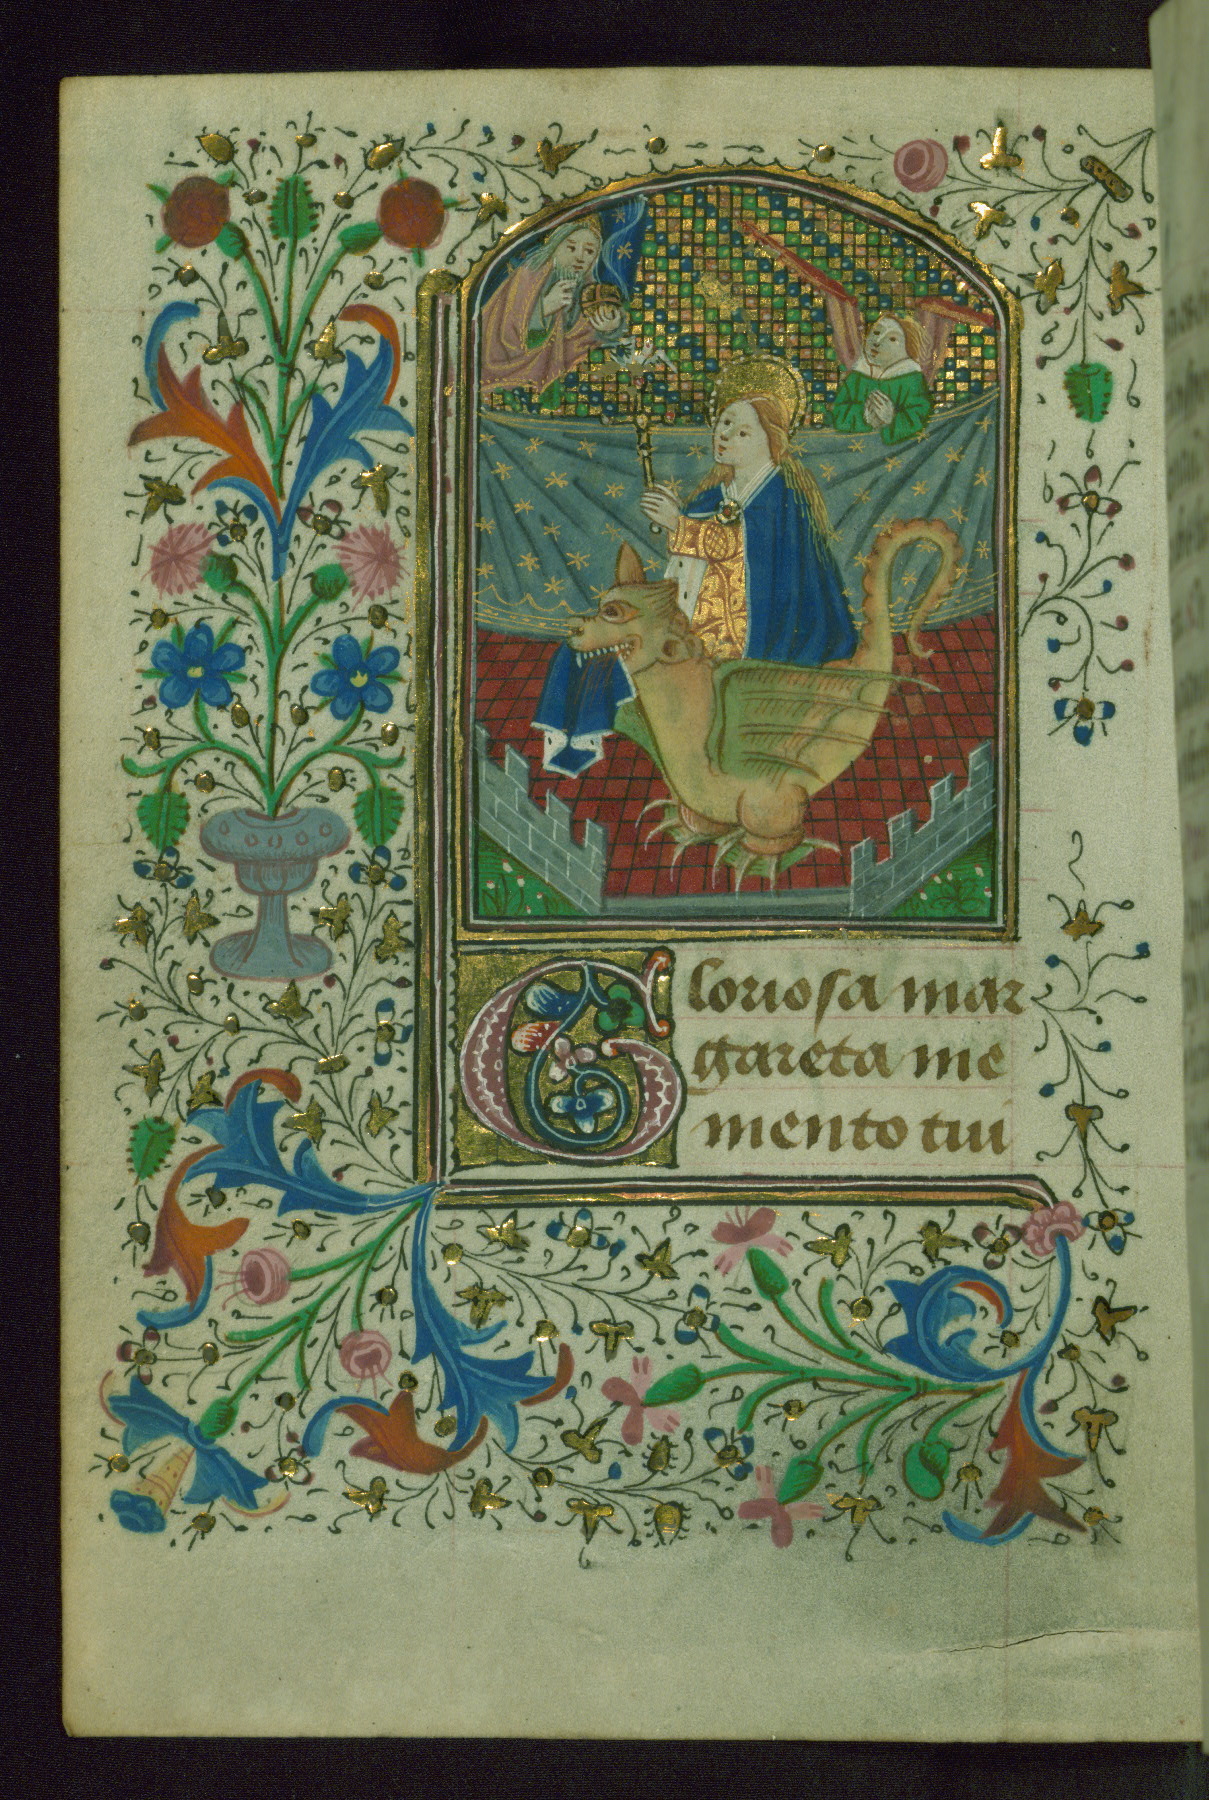 Gloriosa mar
gareta me
mento tui